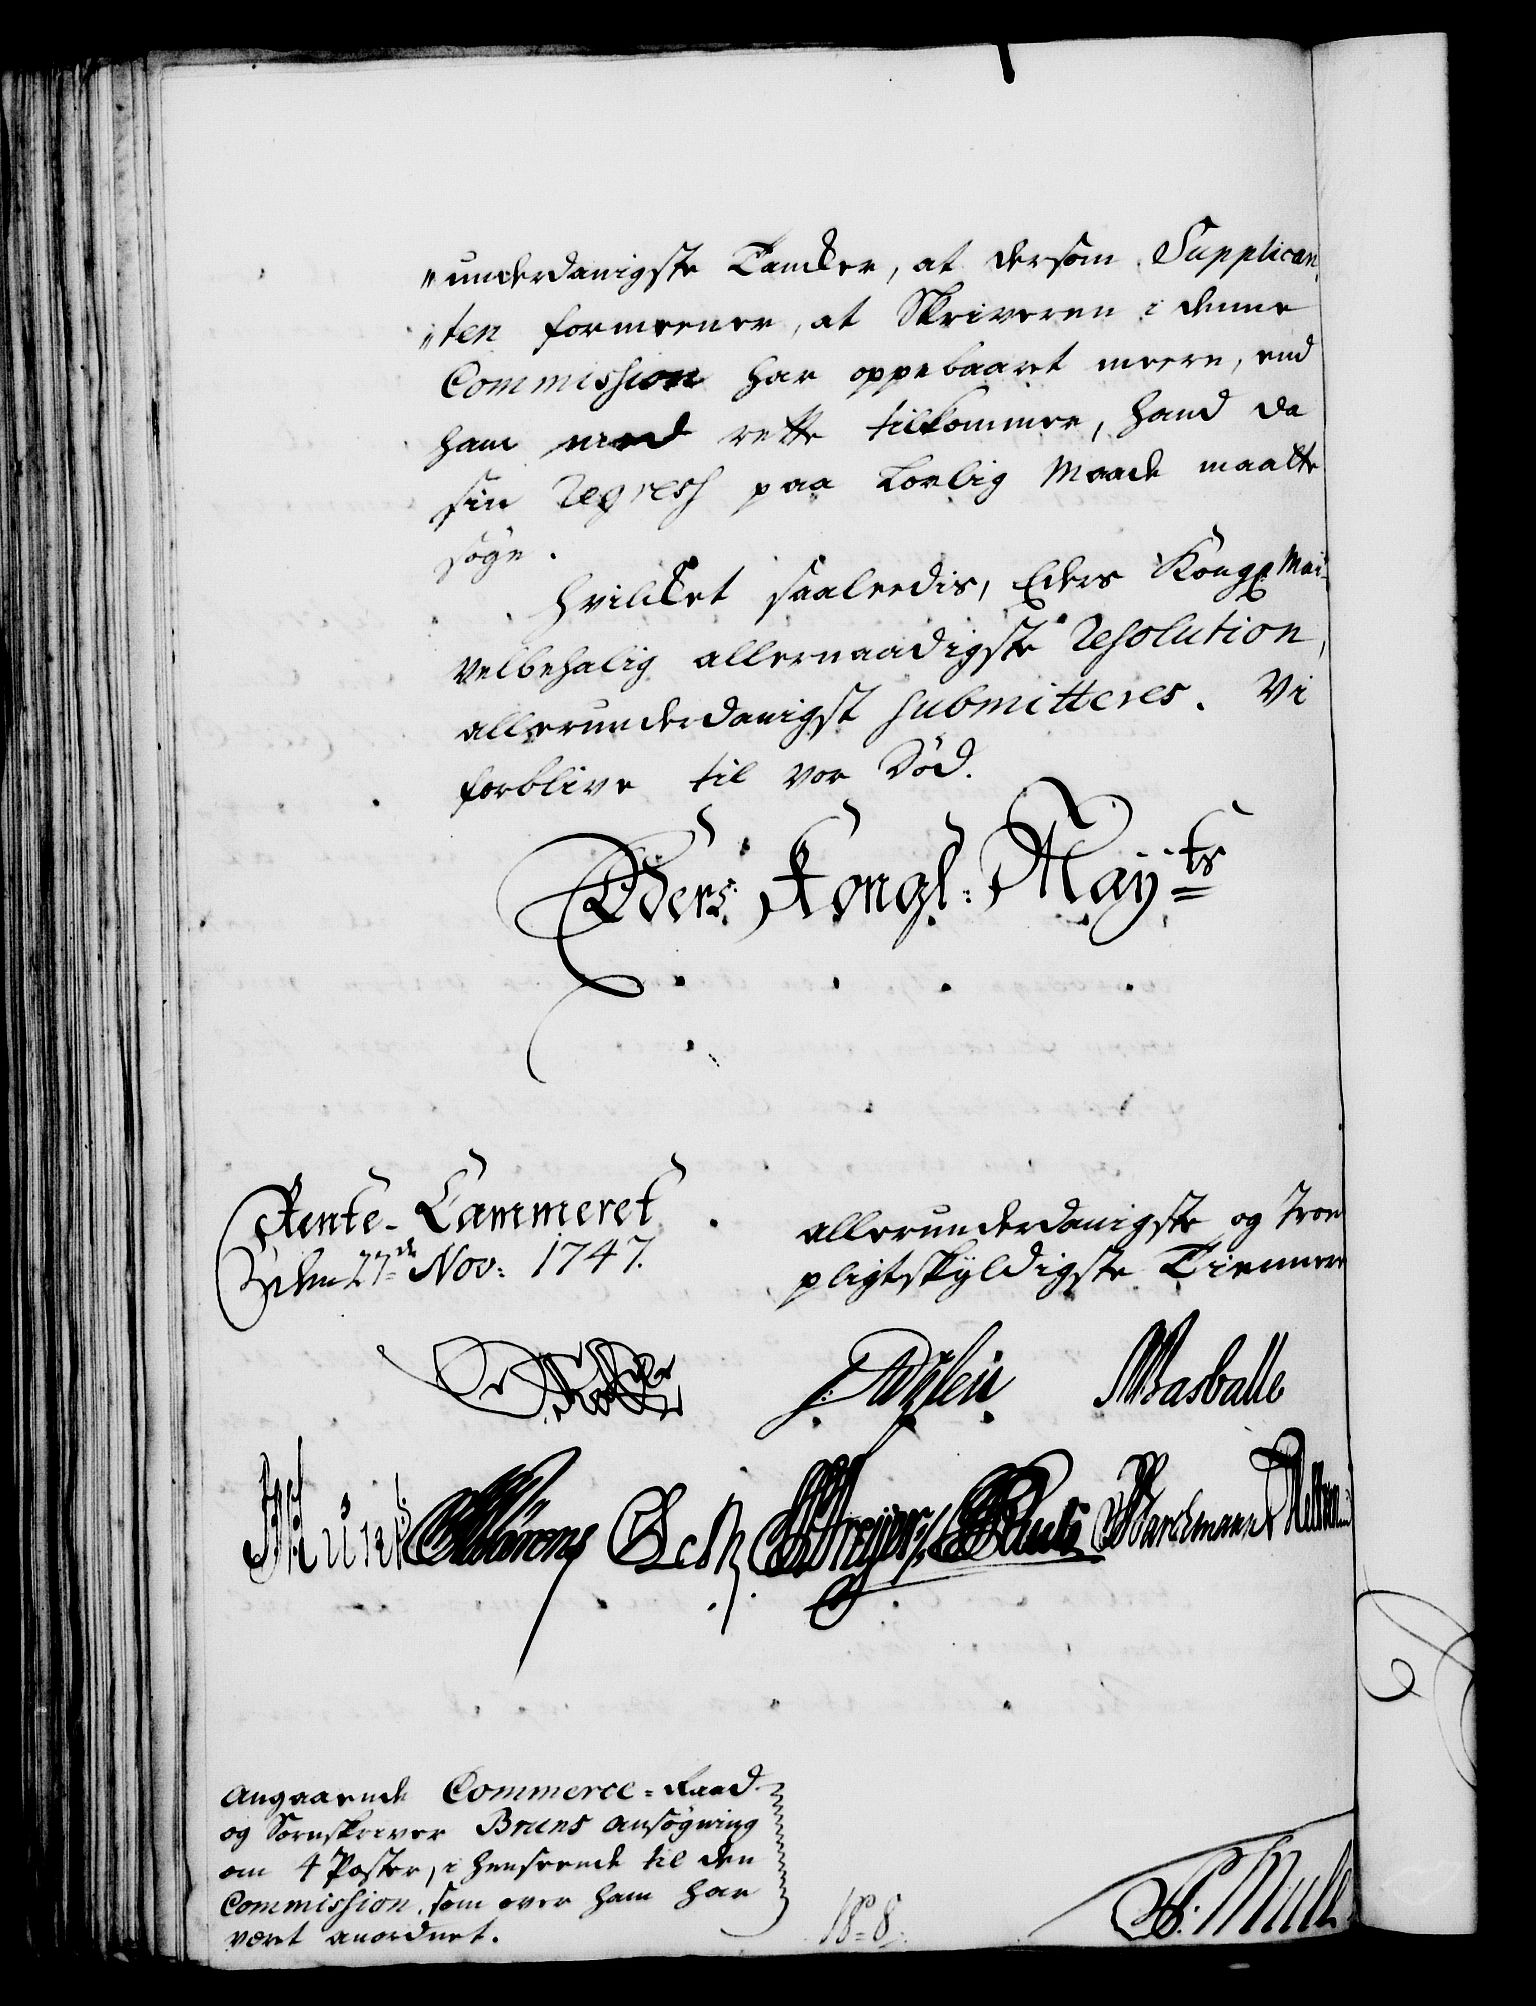 "underdanigste Tancker, at dersom Supplican,
"ten formeener, at Skriveren i denne
Commission har oppebaaret meere, end
ham med rette tilkommer, hand da
sin Regress paa Lovlig Maade maatte
søge.
Hvilcket saaleedis, Eders Kongl Mai
velbehalig allernaadigste Resolution,
allerunderdanigst submitteres. Vi
forblive til vor Død.
Eders Kongl: Mayts
Rente-Cammeret
den 27de Nov: 1747.
allerunderdanigste og troe
pligtskyldigste Tiennere
Masballe
Angaaende Commerce-Raad
og Sornskriver Bruns Ansøgning
om 4 Poster, i henseende til den
Commission, som over ham har
vært anordnet.